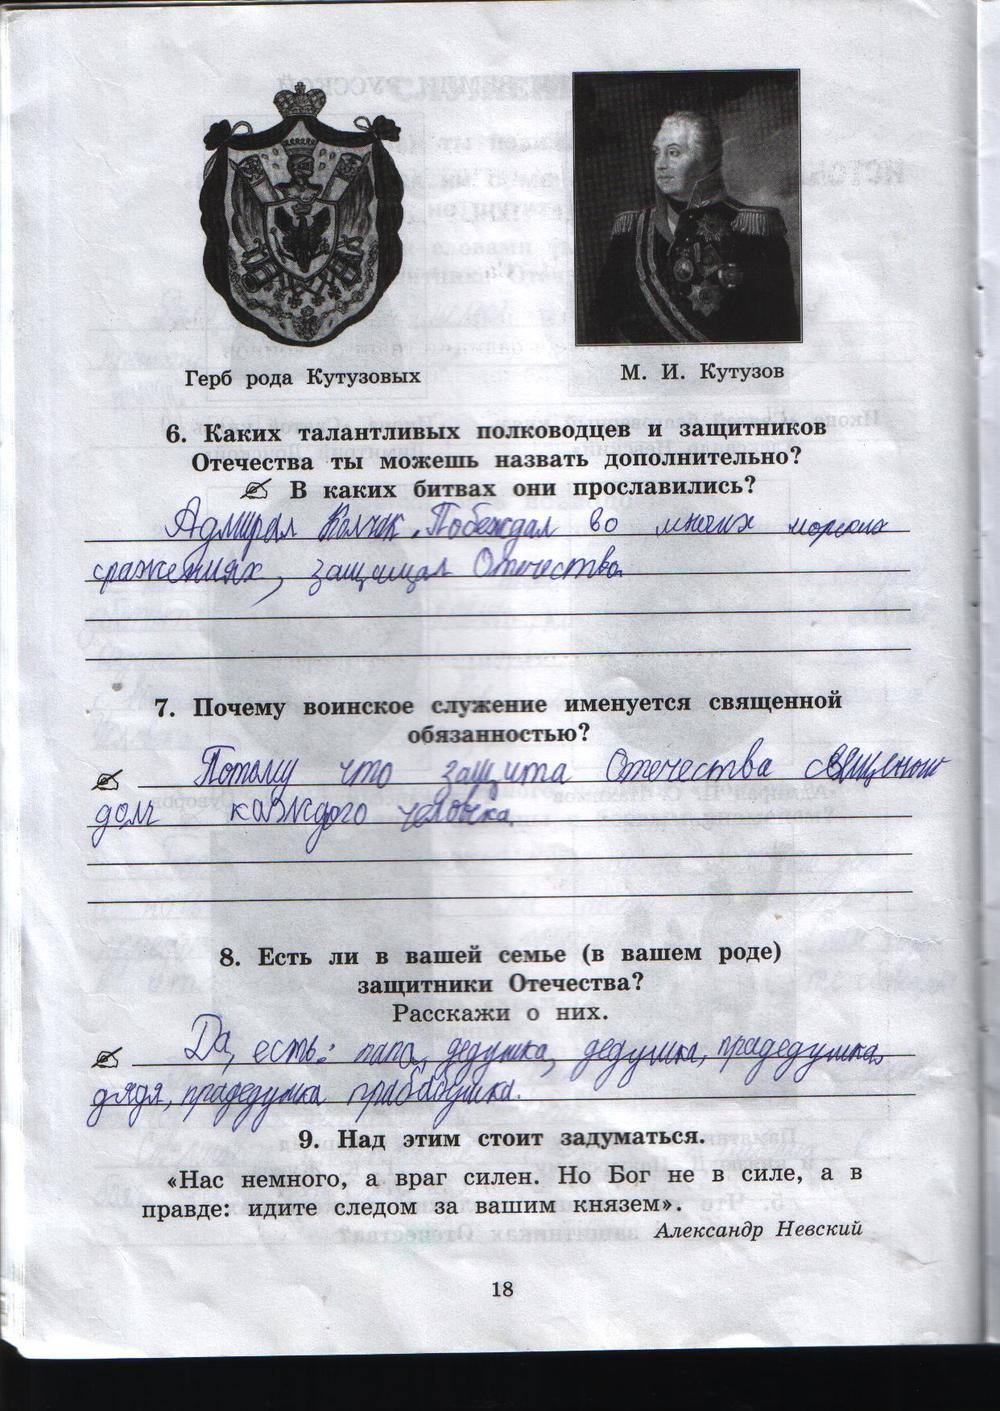 Герб рода Кутузовых
М. И. Кутузов
6. Каких талантливых полководцев и защитников
Отечества ты можешь назвать дополнительно?
В каких битвах они прославились?
Адмирал Колчак. Побеждал во многих морских
сражениях, защищал Отечество.
7. Почему воинское служение именуется священной
обязанностью?
Потому что защита Отечества священный
долг каждого человека.
8. Есть ли в вашей семье (в вашем роде)
защитники Отечества?
Расскажи о них.
Да, есть: папа, дедушка, дедушка, прадедушка,
дядя, прадедушка прабабушка.
9. Над этим стоит задуматься.
«Нас немного, а враг силен. Но Бог не в силе, а в
правде: идите следом за вашим князем».
Александр Невский
18